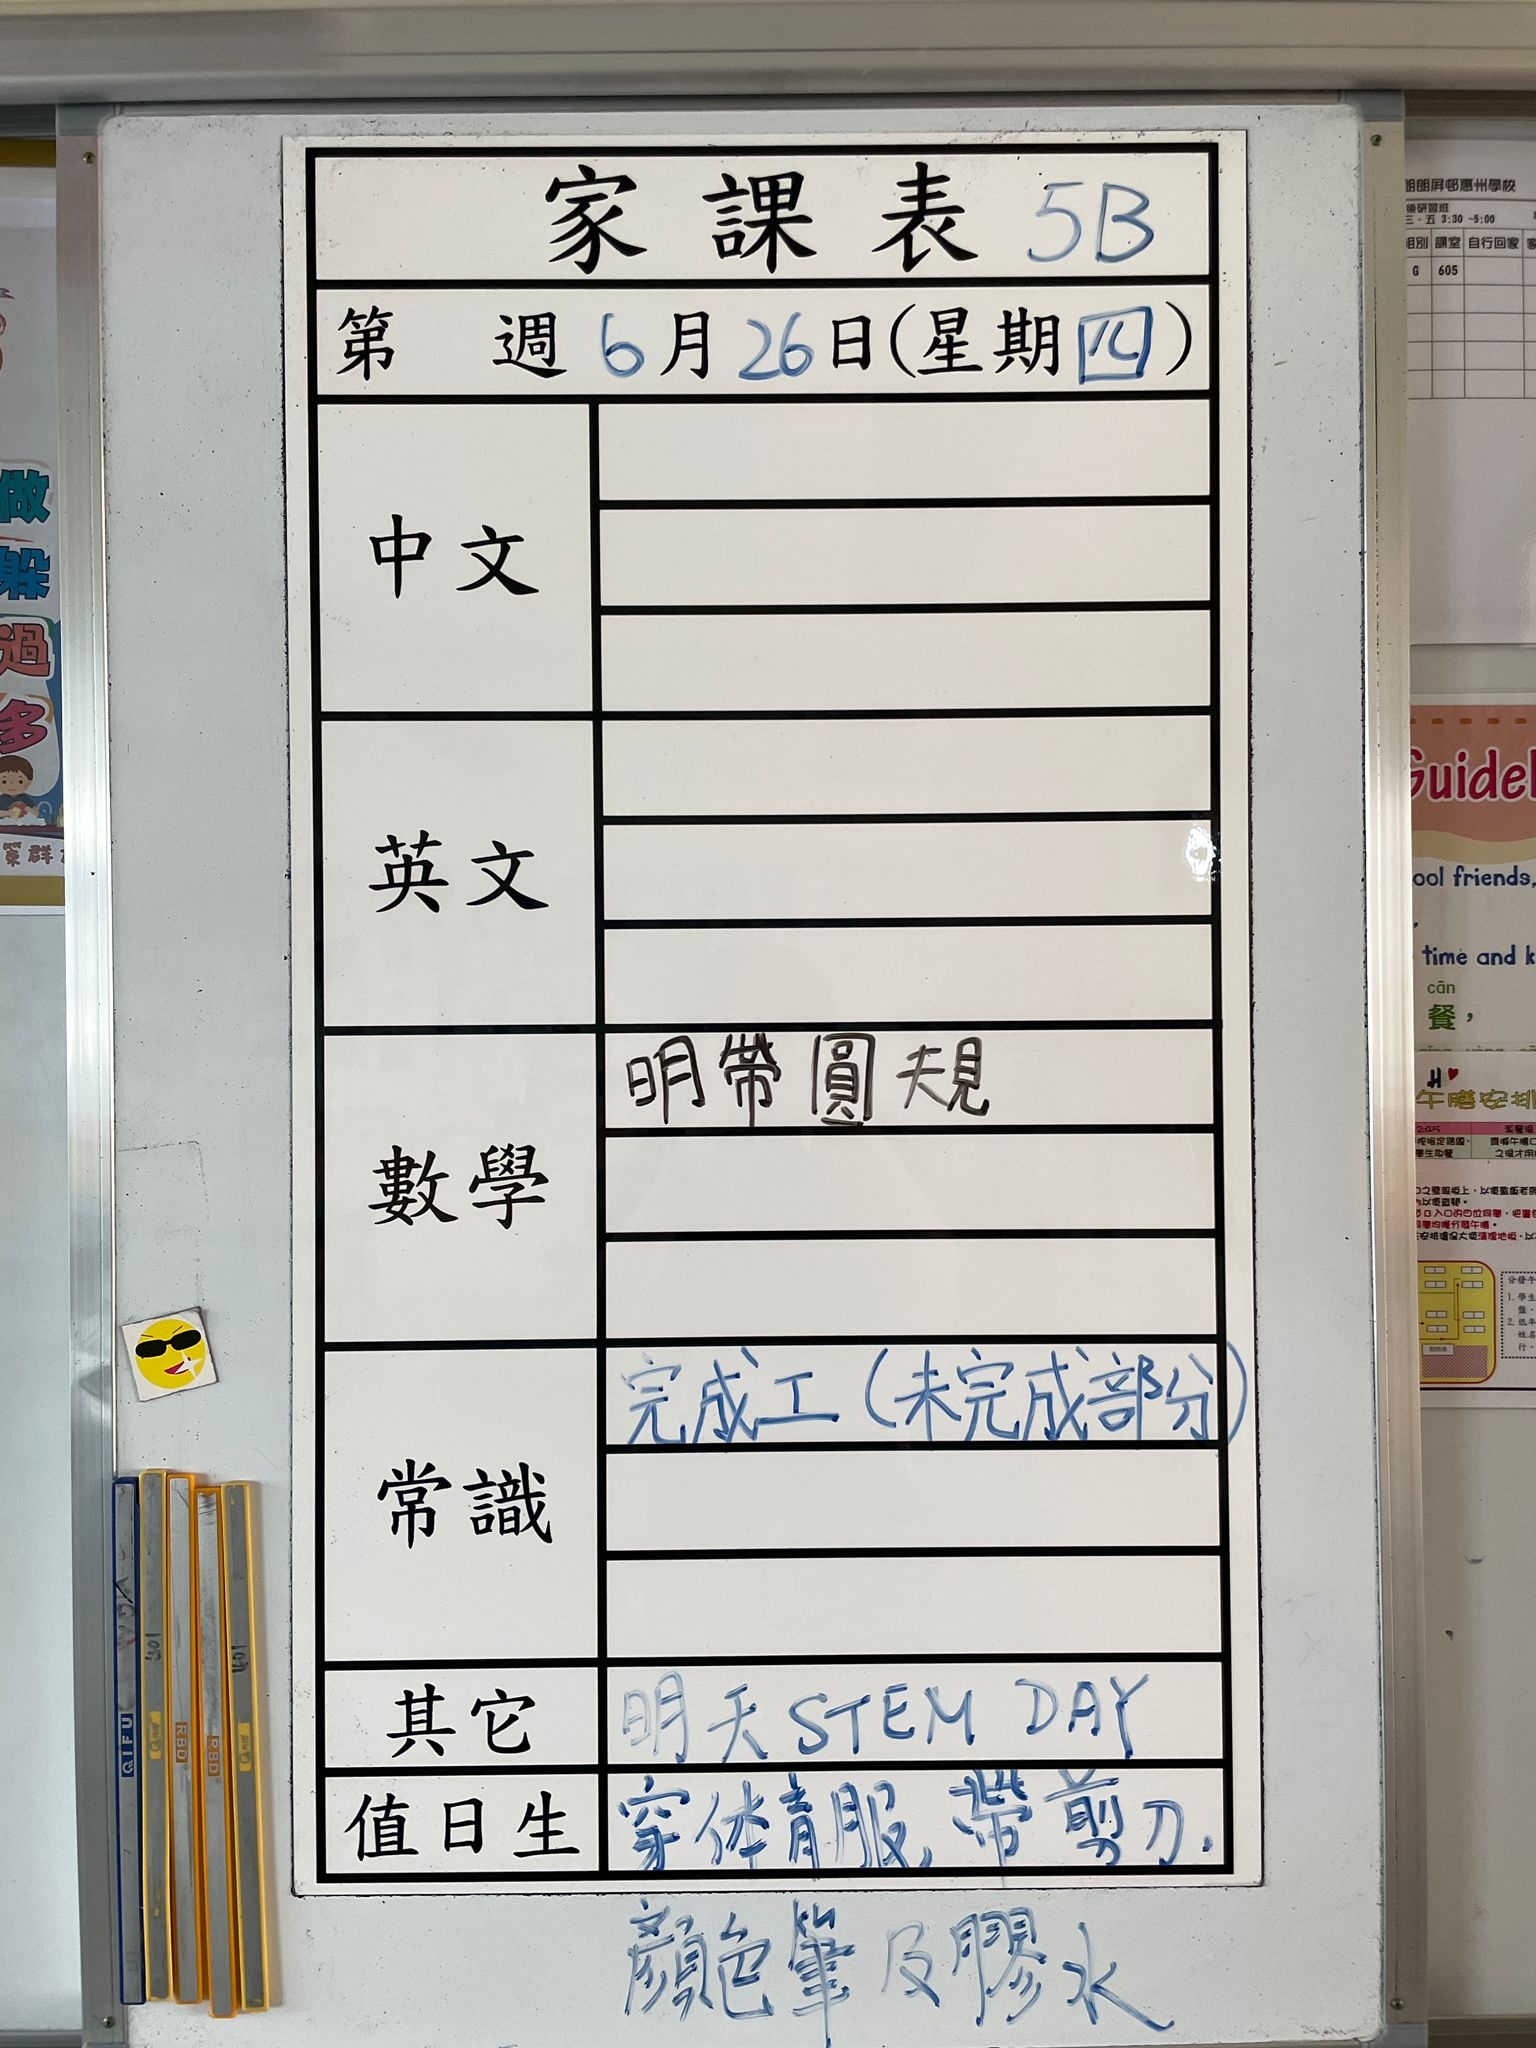 家課表 5B
第 週 6月26日(星期四)
中文
英文
數學
明帶圓規
常識
完成工(未完成部分)
其它
明天 STEM DAY
值日生
穿体育服, 帶剪刀,
顏色筆及膠水
QIFU
RBD
RBD
做
躲
過
多
朗屏邨惠州學校
三、五 3:30 -5:00
組別 課室 自行回家
G 605
Guidel
ool friends,
time and k
cān
餐，
午膳安排